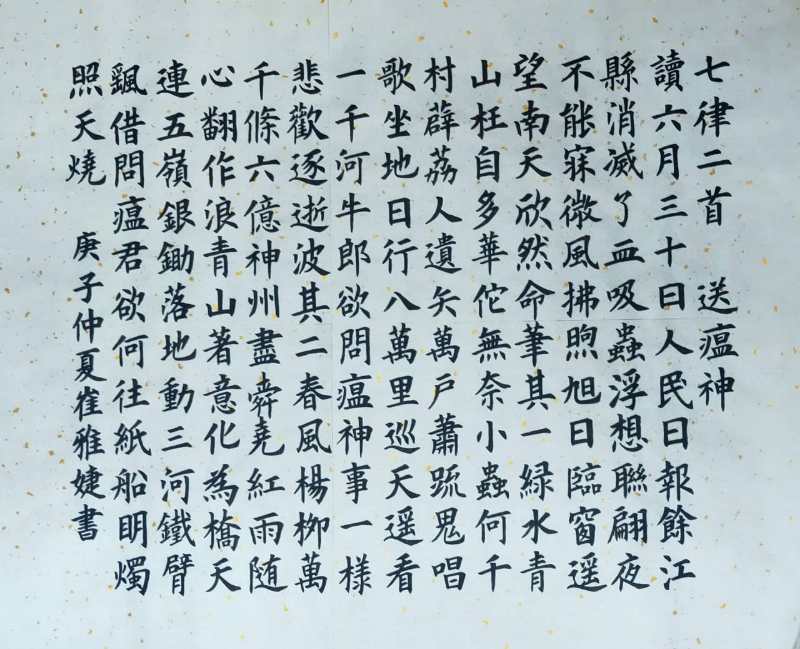 七律二首　送瘟神
讀六月三十日人民日報餘江
縣消滅了血吸蟲浮想聯翩夜
不能寐微風拂煦旭日臨窗遥
望南天欣然命筆其一緑水青
山枉自多華佗無奈小蟲何千
村薜荔人遺矢萬戶蕭疏鬼唱
歌坐地日行八萬里巡天遥看
一千河牛郎欲問瘟神事一樣
悲歡逐逝波其二春風楊柳萬
千條六億神州盡舜堯紅雨随
心翻作浪青山著意化為橋天
連五嶺銀鋤落地動三河鐵臂
飄借問瘟君欲何往紙船明燭
照天燒
庚子仲夏崔雅婕書